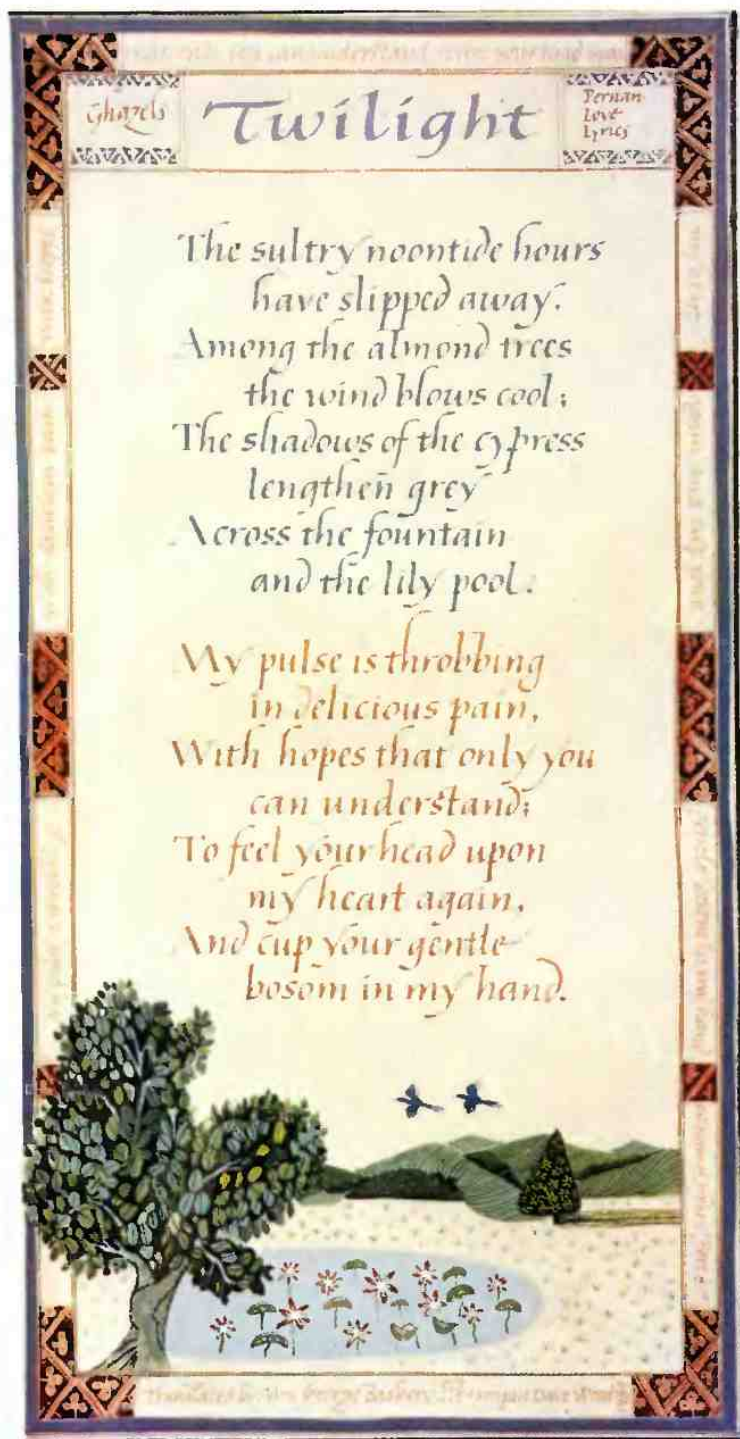 Ghazels
Twilight
Persian
Love
Lyrics
The sultry noontide hours
have slipped away.
Among the almond trees
the wind blows cool;
The shadows of the cypress
lengthen grey
Across the fountain
and the lily pool.
My pulse is throbbing
in delicious pain,
With hopes that only you
can understand;
To feel your head upon
my heart again,
And cup your gentle
bosom in my hand.